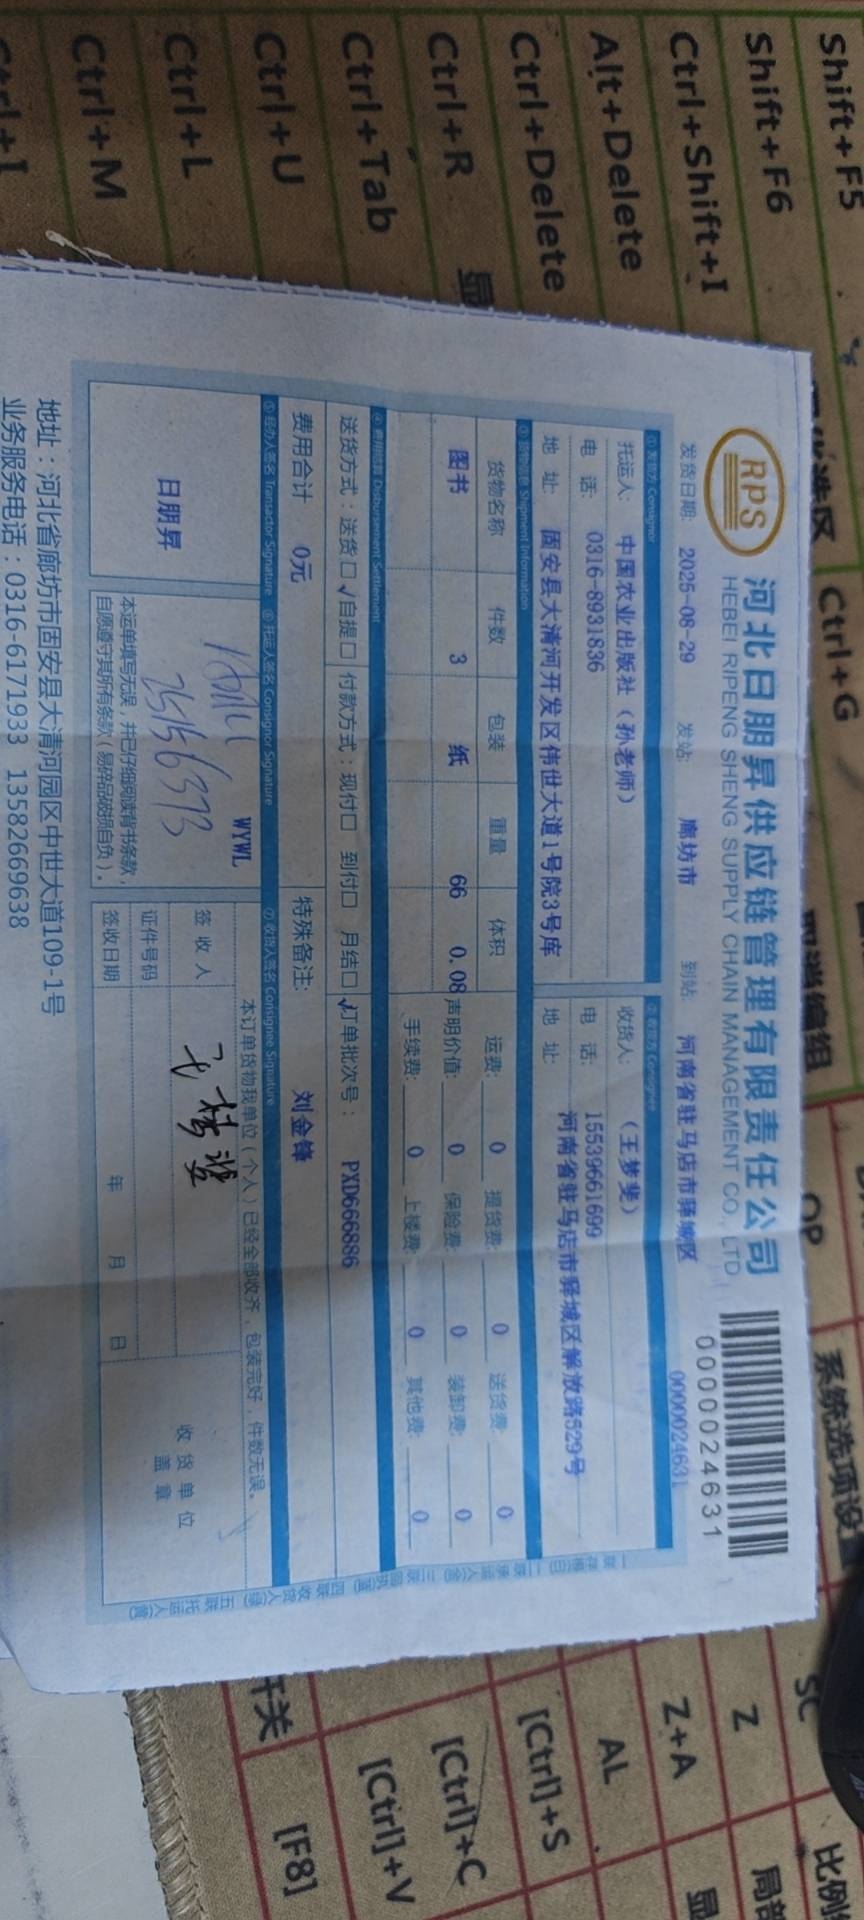 RPS
河北日朋昇供应链管理有限责任公司
HEBEI RIPENG SHENG SUPPLY CHAIN MANAGEMENT CO., LTD
0000024631
发货日期: 2025-08-29 发站: 廊坊市 到站: 河南省驻马店市驿城区 0000024631
① 发货方 Consignor ② 收货方 Consignee
托运人: 中国农业出版社（孙老师） 收货人: （王梦斐）
电 话: 0316-8931836 电 话: 15539661699
地 址: 固安县大清河开发区伟世大道1号院3号库 地 址: 河南省驻马店市驿城区解放路529号
③ 货物信息 Shipment Information
货物名称 件数 包装 重量 体积 运费: 0 提货费: 0 送货费: 0
图书 3 纸 66 0.08 声明价值: 0 保险费: 0 装卸费: 0
手续费: 0 上楼费: 0 其他费: 0
④ 费用结算 Disbursement Settlement
送货方式：送货□ √自提□ 付款方式：现付□ 到付□ 月结□ √订单批次号： PXD666886
费用合计 0元 特殊备注: 刘金锋
⑤ 经办人签名 Transactor Signature ⑥ 托运人签名 Consignor Signature ⑦ 收货人签名 Consignee Signature
日朋昇
WYWL
25156373
本运单填写无误，并已仔细阅读背书条款，
自愿遵守其所有条款（易碎品破损自负）。
本订单货物我单位（个人）已经全部收齐，包装完好，件数无误。
签收人
证件号码
签收日期 年 月 日
收货单位
盖章
地址：河北省廊坊市固安县大清河园区中世大道109-1号
业务服务电话：0316-6171933 13582669638
Shift+F5
Shift+F6
Ctrl+Shift+I
Alt+Delete
Ctrl+Delete
Ctrl+R 显
Ctrl+Tab
Ctrl+U
Ctrl+L
Ctrl+M
Ctrl+G
取消编组
OP
系统选项设
SC
Z
Z+A
AL
[Ctrl]+S
[Ctrl]+C
[Ctrl]+V
开关 [F8]
比例
局部
显